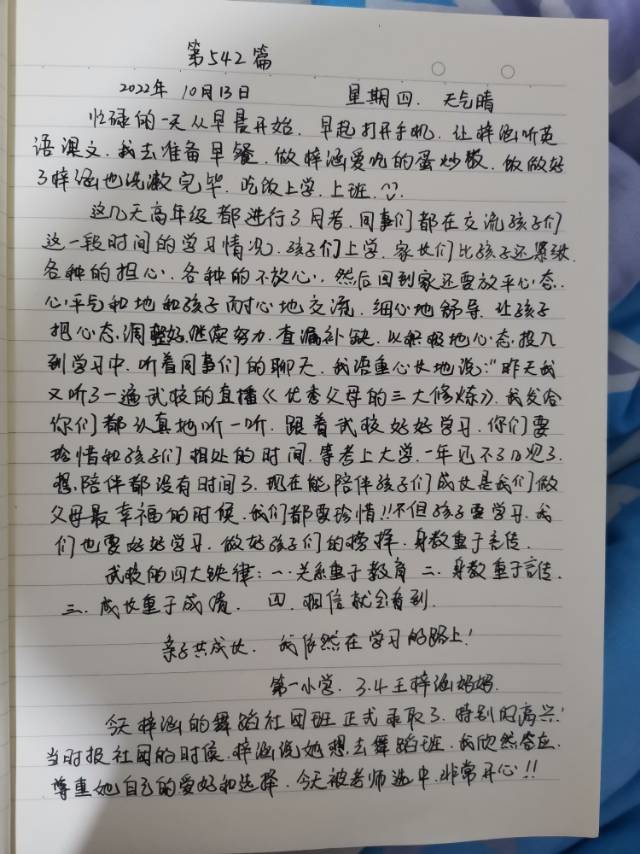 第542篇
2022年 10月13日 星期四. 天气晴
忙碌的一天从早晨开始. 早起打开手机. 让梓涵听英
语课文. 我去准备早餐. 做梓涵爱吃的蛋炒馍. 饭做好
了梓涵也洗漱完毕. 吃饭上学. 上班.
这几天高年级都进行了月考. 同事们都在交流孩子们
这一段时间的学习情况. 孩子们上学. 家长们比孩子还累
各种的担心. 各种的不放心. 然后回到家还要放平心态.
心平气和地和孩子耐心地交流. 细心地舒导. 让孩子
把心态调整好. 继续努力. 查漏补缺. 以积极地心态投入
到学习中. 听着同事们的聊天. 我语重心长地说:“昨天我
又听了一遍武校的直播《优秀父母的三大修炼》. 我发给
你们都认真地听一听. 跟着武校好好学习. 你们要
珍惜和孩子们相处的时间. 等考上大学. 一年见不了几次了.
想陪伴都没有时间了. 现在能陪伴孩子们成长是我们做
父母最幸福的时候. 我们都要珍惜!!不但孩子要学习. 我
们也要好好学习. 做好孩子们的榜样. 身教重于言传.
武校的四大铁律: 一. 关系重于教育 二. 身教重于言传.
三. 成长重于成绩. 四. 相信就会看到.
亲子共成长. 我依然在学习的路上!
第一小学. 3.4王梓涵妈妈.
今天梓涵的舞蹈社团班正式录取了. 特别的高兴!
当时报社团的时候. 梓涵说她想去舞蹈班. 我欣然答应.
尊重她自己的爱好和选择. 今天被老师选中. 非常开心!!